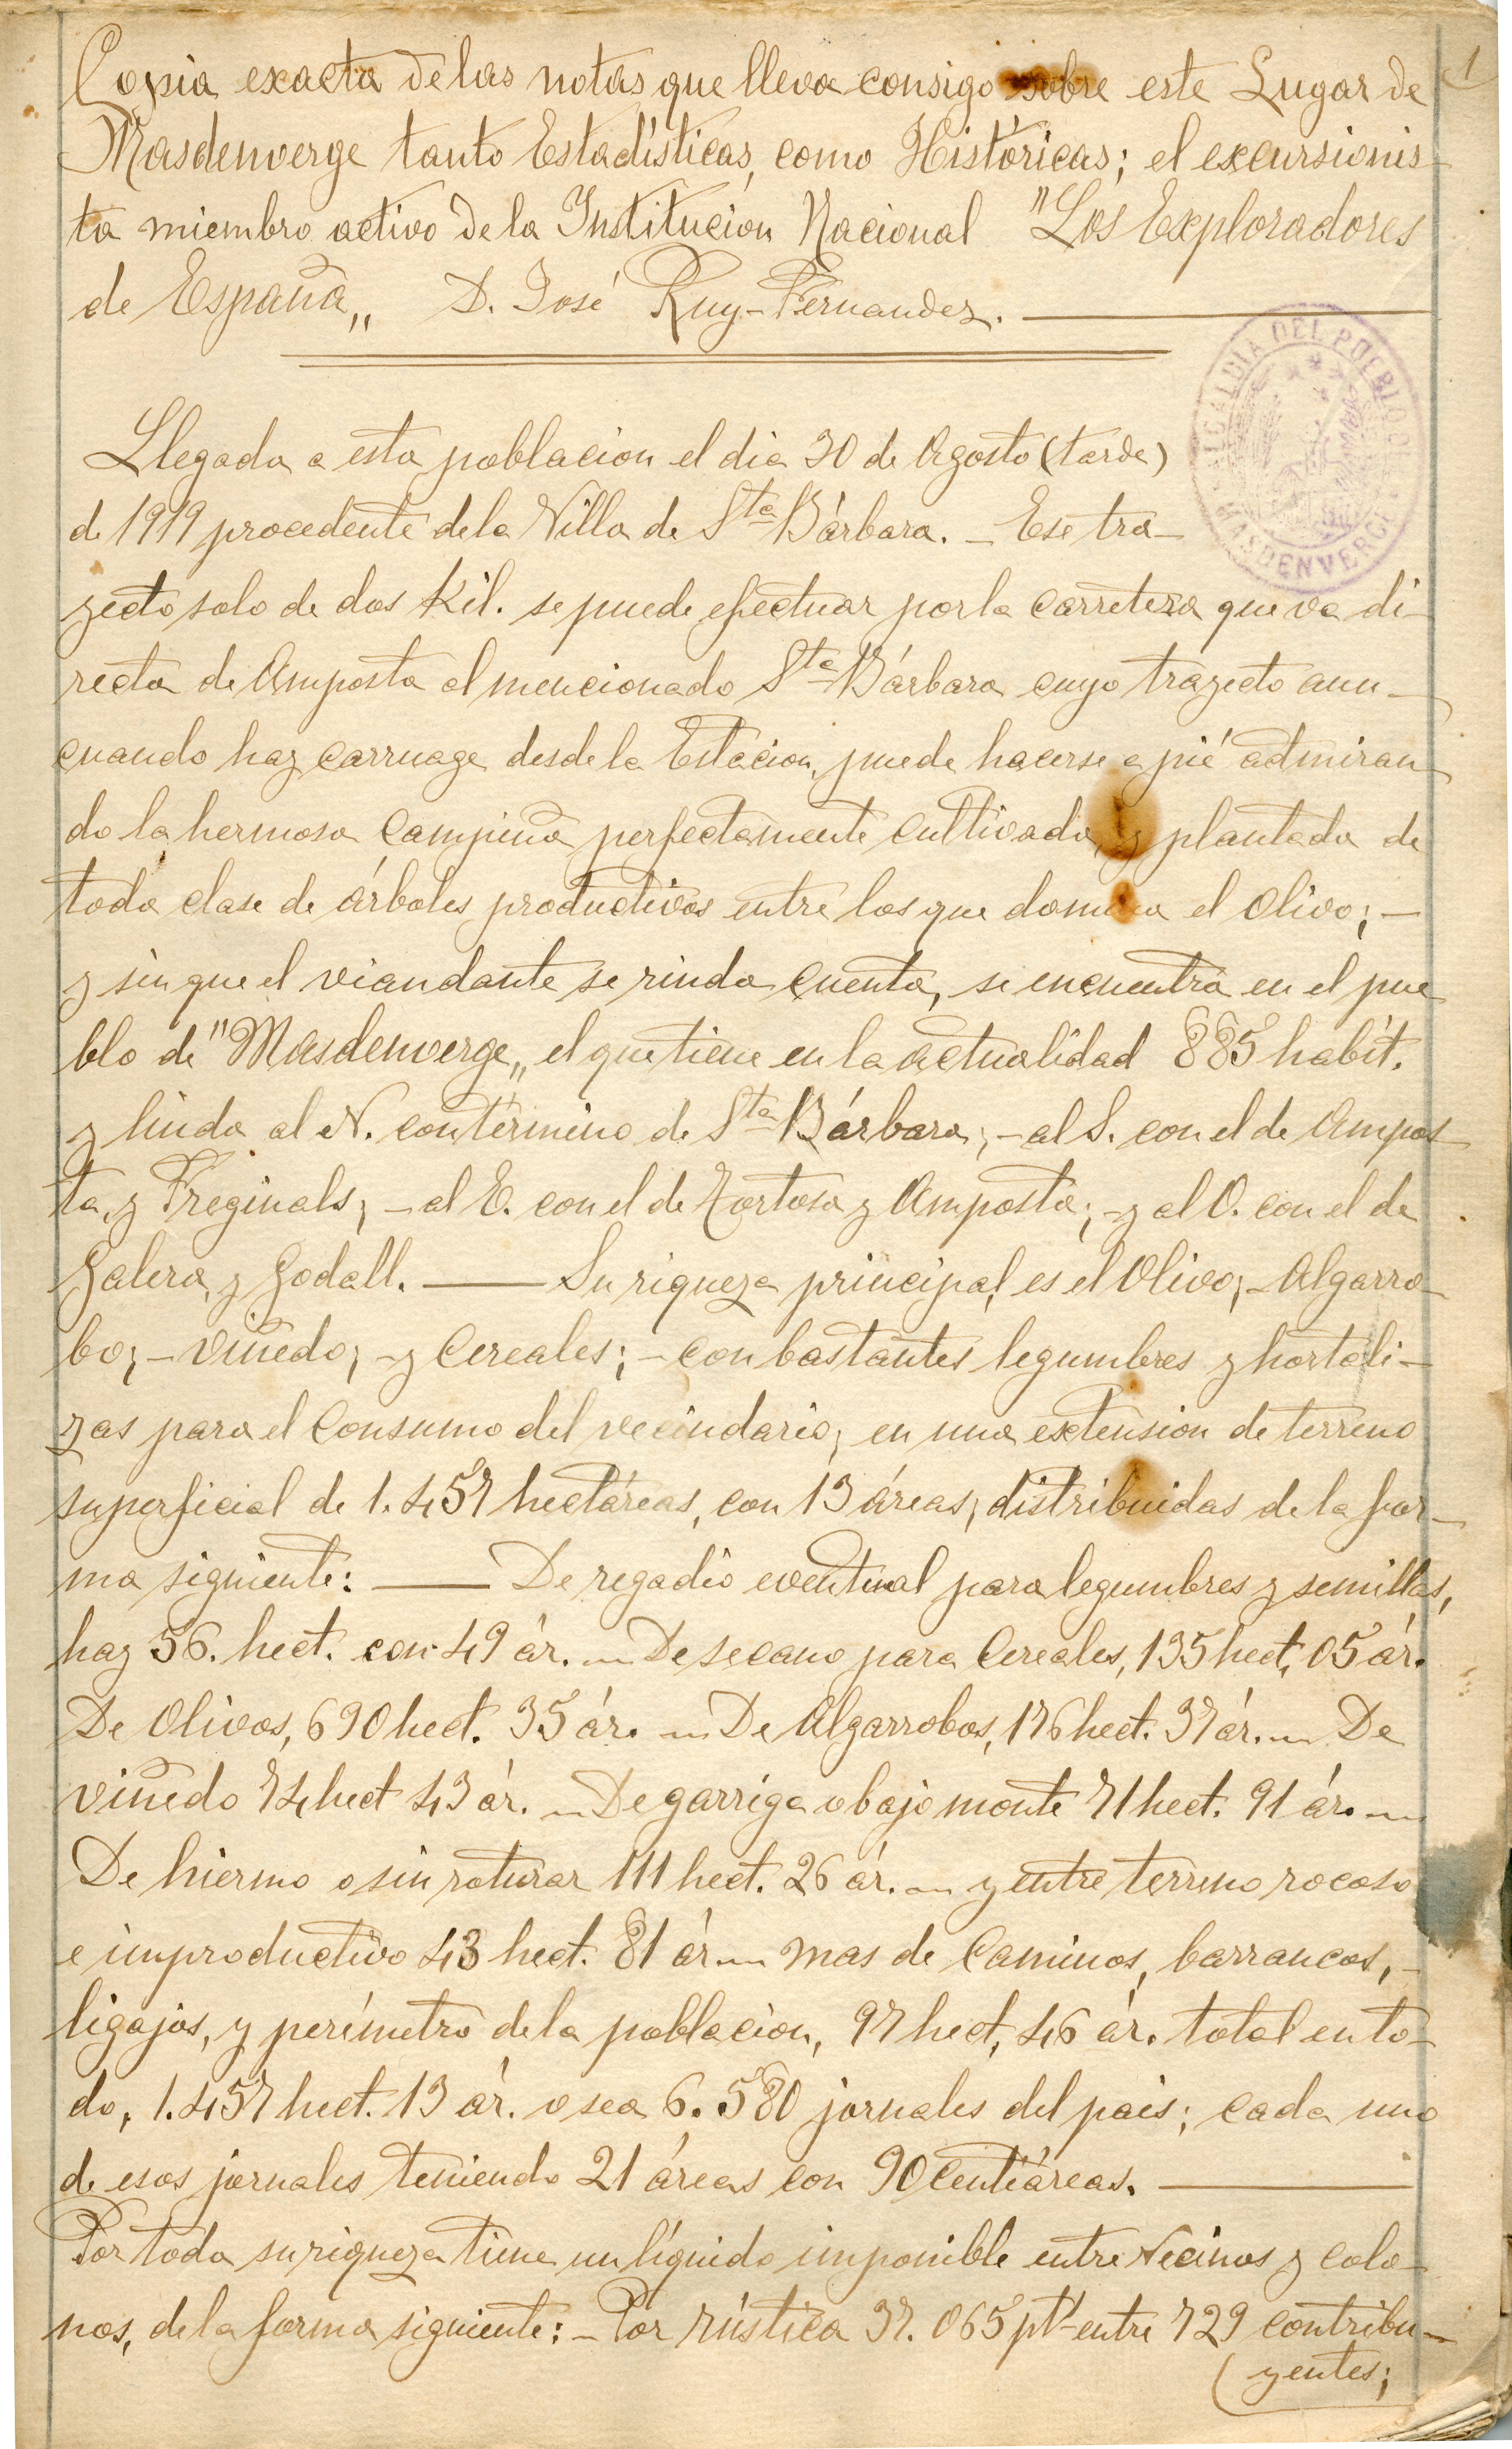 1
Copia exacta de las notas que lleva consigo sobre este Lugar de
Masdenverge tanto Estadísticas, como Históricas; el excursionis-
ta miembro activo de la Institucion Nacional "Los Exploradores
de España„ D. José Ruy-Fernandez.
ALCALDIA DEL PUEBLO DE MASDENVERGE
Llegada a esta poblacion el dia 30 de Agosto (tarde)
de 1919 procedente de la Villa de Sta Bárbara. _ Ese tra-
yecto solo de dos Kil. se puede efectuar por la carretera que va di-
recta de Amposta al mencionado Sta Bárbara cuyo trayecto aun-
cuando hay carruage desde la Estacion, puede hacerse a pié admiran-
do la hermosa campiña perfectamente cultivada, y plantada de
toda clase de árboles productivos entre los que domina el Olivo; _
y sin que el viandante se rinda cuenta, se encuentra en el pue
blo de "Masdenverge„ el que tiene en la actualidad 885 habit.
y linda al N. con término de Sta Bárbara; _ al S. con el de Ampos-
ta, y Freginals; _ al E. con el de Tortosa y Amposta; _ y al O. con el de
Galera, y Godall. ___ Su riqueza principal es el Olivo; _ Algarro-
bo; _ viñedo; _ y Cereales; _ con bastantes legumbres y hortali-
zas para el Consumo del vecindario; en una extension de terreno
superficial de 1.457 hectáreas, con 13 áreas, distribuidas de la for-
ma siguiente: ___ De regadío eventual para legumbres y semillas,
hay 56. hect. con 49 ár. _ De secano para Cereales, 135 hect, 05 ár.
De Olivos, 690 hect. 35 ár. _ De Algarrobos, 176 hect. 37 ár. _ De
viñedo 74 hect 43 ár. _ De garriga o bajo monte 71 hect. 91 ár. _
De hiermo o sin roturar 111 hect. 26 ár. _ y entre terreno rocoso
e improductivo 43 hect. 81 ár _ mas de Caminos, barrancos, _
ligajos, y perímetro de la poblacion, 97 hect, 46 ár. total en to-
do, 1.457 hect. 13 ár. o sea 6.580 jornales del pais; cada uno
de esos jornales teniendo 21 áreas con 90 Centiáreas.
Por toda su riqueza tiene un líquido imponible entre Vecinos y colo-
nos, de la forma siguiente: _ Por rústica 37.065 pts entre 729 contribu-
yentes;